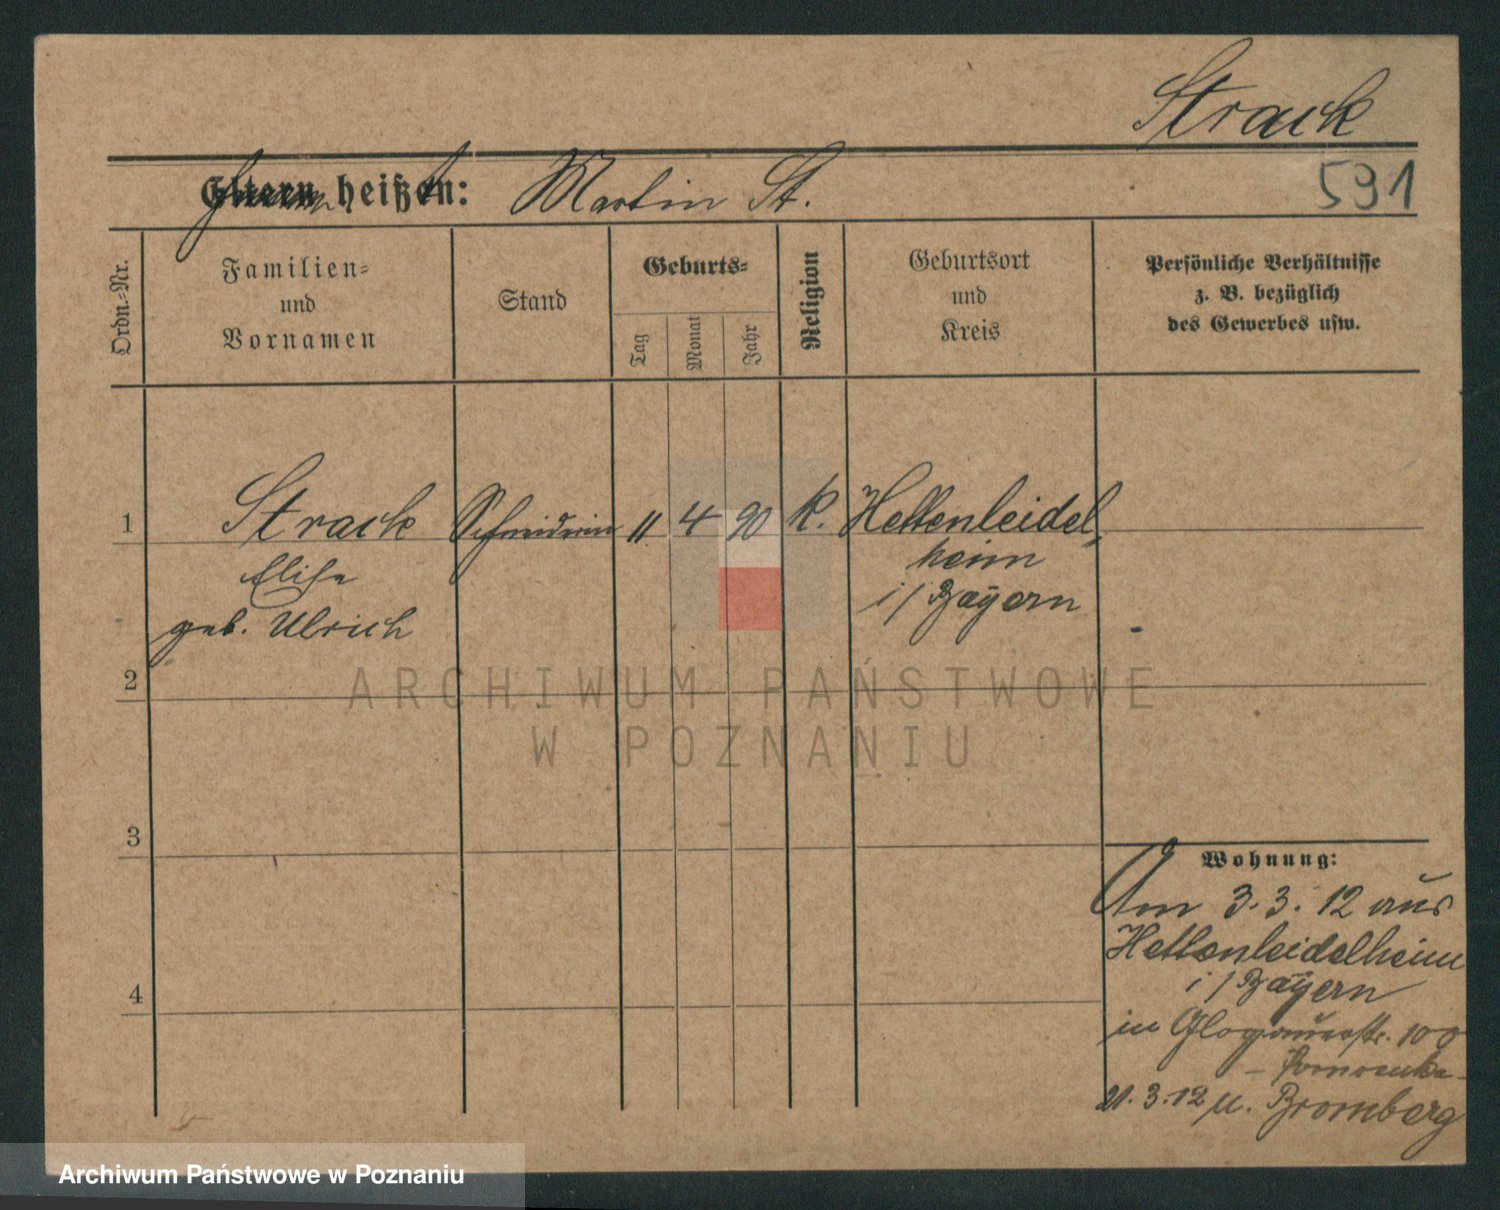 Strack
Eltern heißen: Martin St.
591
Ordn.-Nr.
Familien-
und
Vornamen
Stand
Geburts-
Tag
Monat
Jahr
Religion
Geburtsort
und
Kreis
Persönliche Verhältnisse
z. B. bezüglich
des Gewerbes usw.
1
Strack Schneiderin 11 4 90 k. Hettenleidel,
heim
Elise
i/Bayern
geb. Ulrich
2
ARCHIWUM PAŃSTWOWE
W POZNANIU
3
Wohnung:
Am 3.3.12 aus
Hettenleidelheim
i/Bayern
4
in Glogauerstr. 100
21.3.12 n. Bromberg
Archiwum Państwowe w Poznaniu